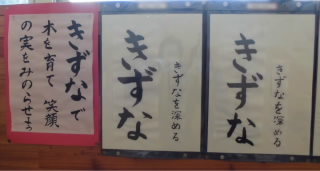 きずなで
木を育て 笑顔
の実をみのらせよう
きずな
きずなを深める
きずな
きずなを深める